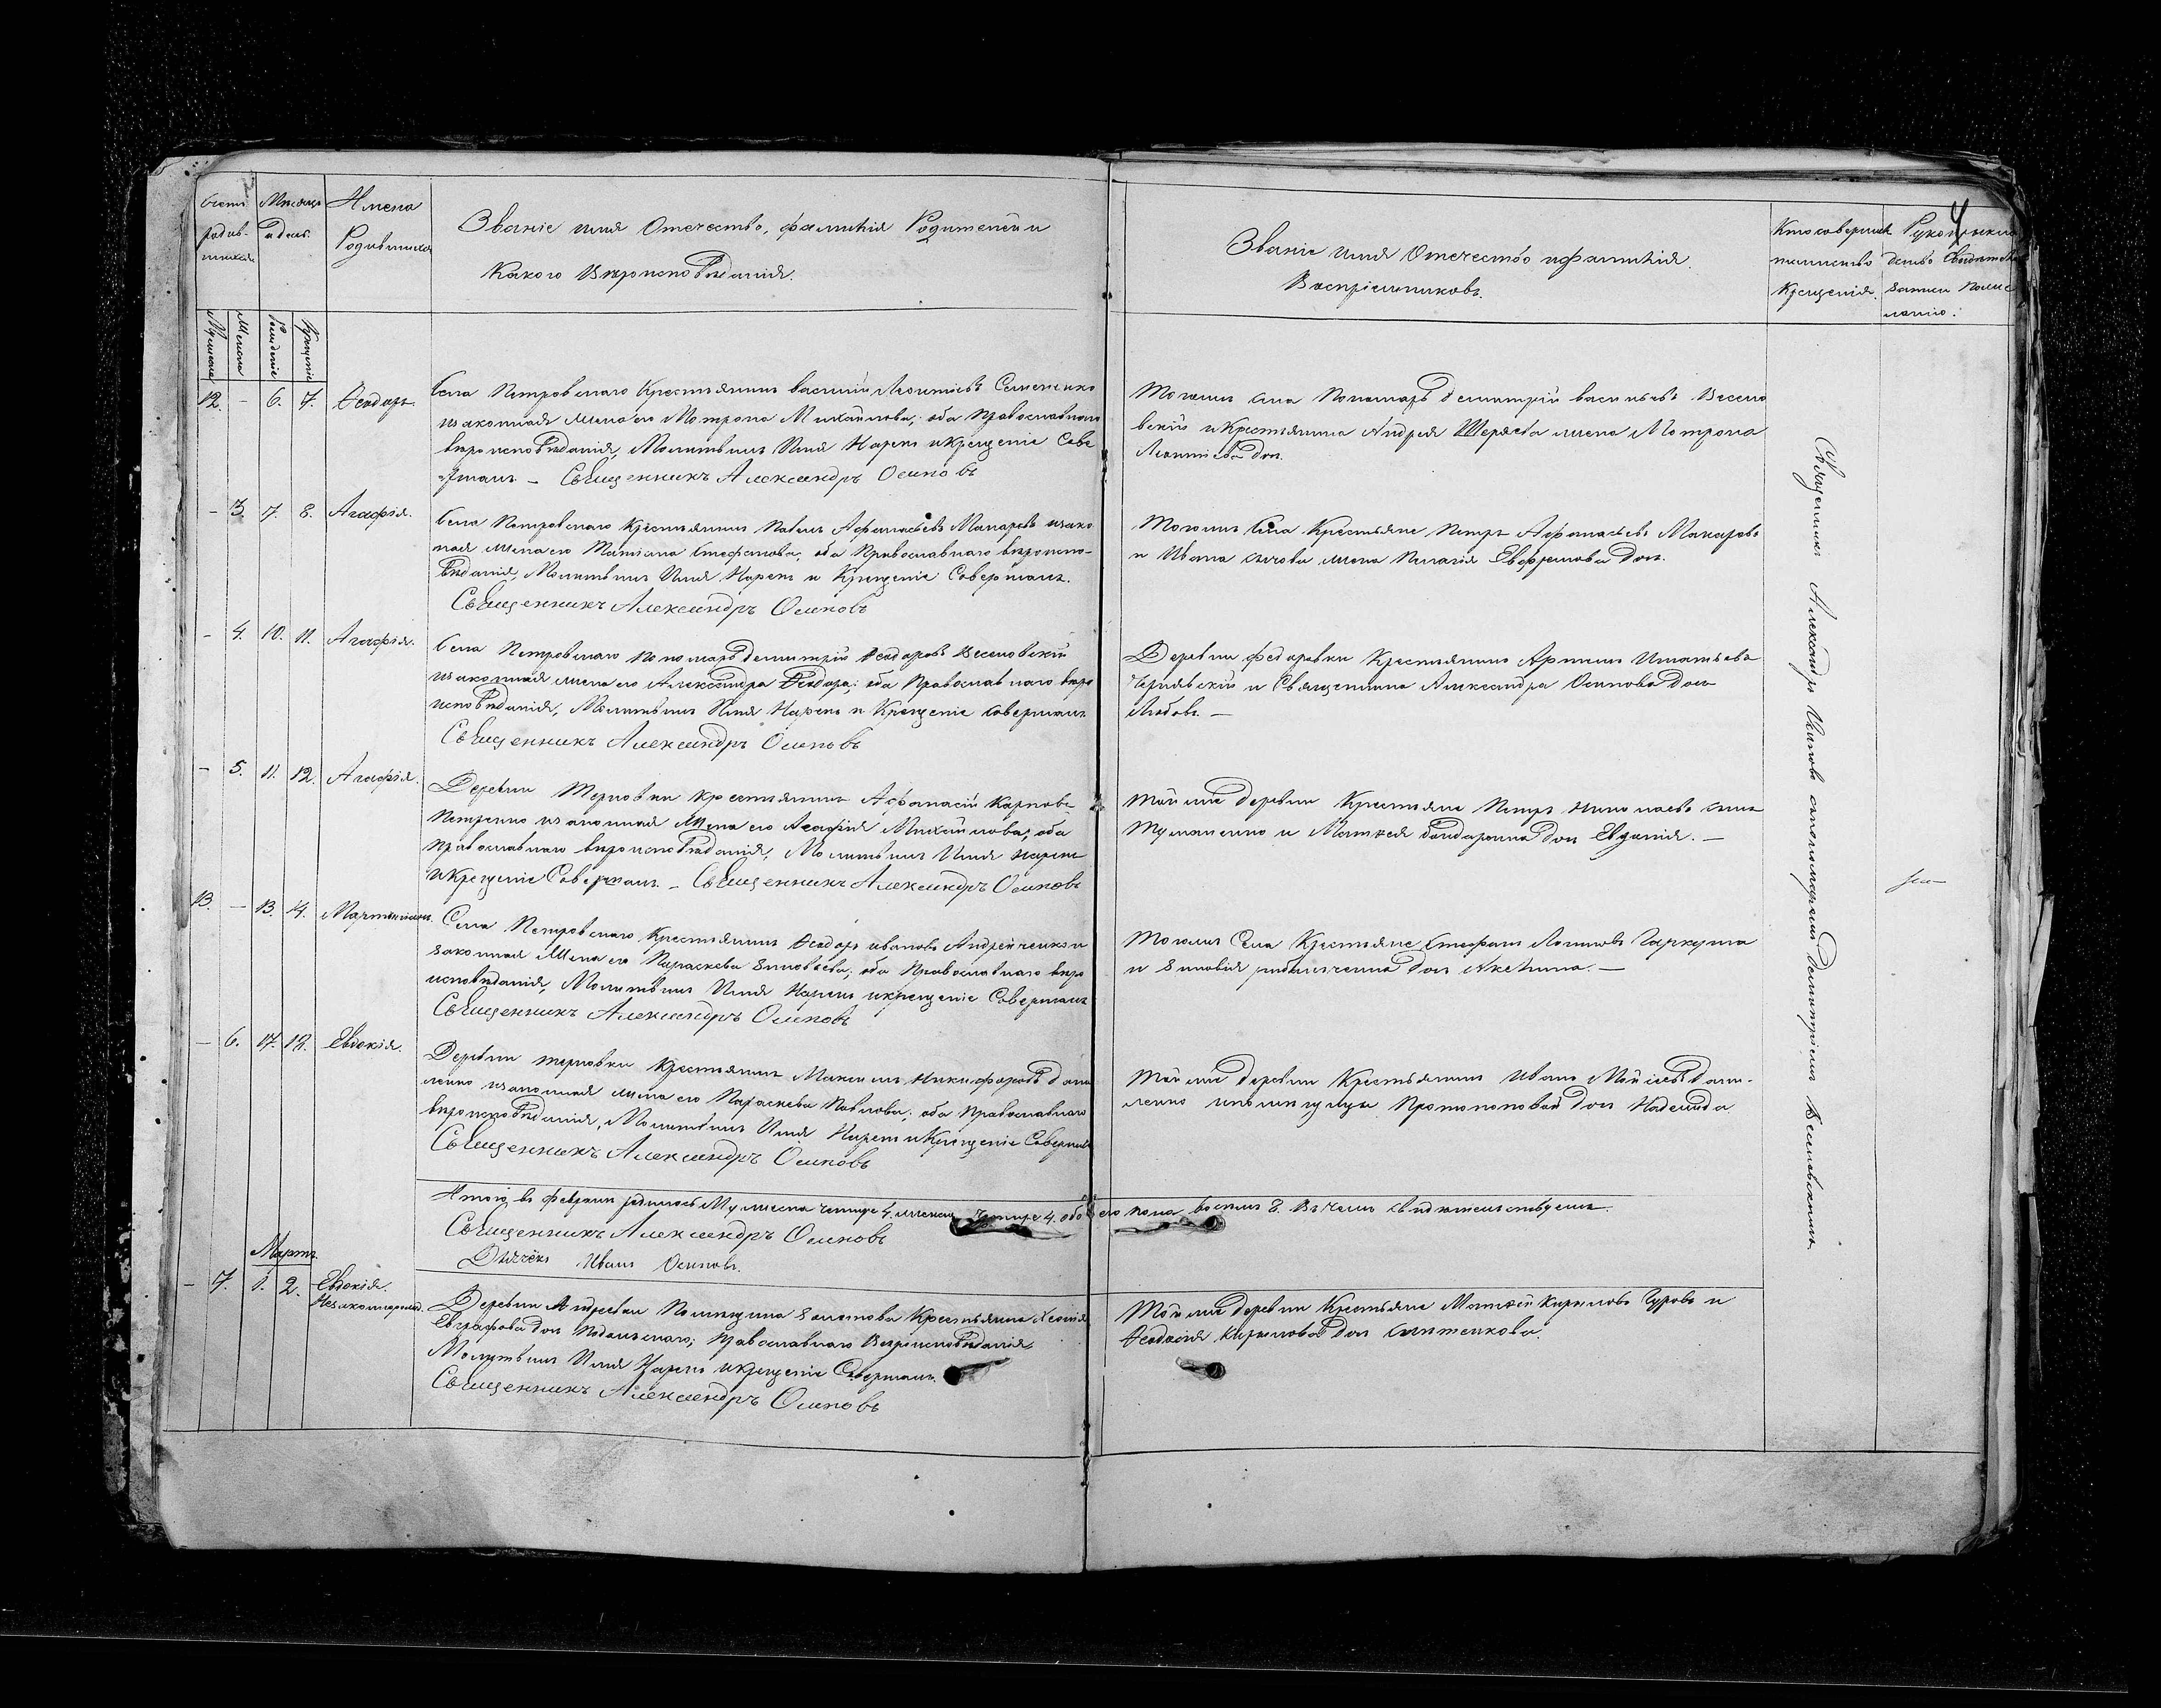 4
Счетъ родив-шихся
Месяцъ и день
Имена Родившихся
Званіе имя Отечество, фамилія Родителей и
Какого Вѣроисповѣданія.
Званіе имя Отечество и фамилія
Воспріемниковъ.
Кто совершилъ
таинство
Крещенія.
Мужеска
Женска
Рожденіе
Крещеніе
12. - 6. 7. Ѳеодоръ.
Села Петровскаго Крестьянинъ Василій Леонтіевъ Семененко
и законная жена его Матрона Михайлова; оба Православнаго
вѣроисповѣданія, Молитвилъ Имя Нарекъ и Крещеніе Сове
ршалъ – Священникъ Александръ Осиповъ
Тогожъ села Пономарь Димитрій Васильевъ Весело
вскій и Крестьянина Андрея жена Матрона
Леонтіева доч.
- 3. 7. 8. Агафія.
Села Петровскаго Крестьянинъ Павелъ Афанасьевъ Макаровъ и зако
ная жена его Татіана Стефанова, оба Православнаго вѣроиспо-
вѣданія, Молитвилъ Имя Нарекъ и Крещеніе Совершалъ.
Священникъ Александръ Осиповъ
Тогожъ Села Крестьяне Петръ Афанасьевъ Макаровъ
и Ивана жена Пелагія Евфремова доч.
- 4. 10. 11. Агафія.
Села Петровскаго Пономарь Димитрій Ѳеодоровъ Веселовскій
и законная жена его Александра Ѳеодора; оба Православнаго вѣро
исповѣданія, Молитвилъ Имя Нарекъ и Крещеніе совершалъ
Священникъ Александръ Осиповъ
Деревни Федоровки Крестьянинъ Артемъ Игнатьевъ
Чернявскій и Священника Александра Осипова доч
Любовь. –
- 5. 11. 12. Агафія.
Деревни Терновки Крестьянинъ Афанасій Карповъ
Петренко и законная Жена его Агафія Михайлова; оба
Православнаго вѣроисповѣданія, Молитвилъ Имя нарекъ
и Крещеніе Совершалъ – Священникъ Александръ Осиповъ
Той же деревни Крестьяне Петръ Николаевъ сынъ
Туманенко и Матвея бондаренка доч Евдокія. –
13. - 13. 14. Мартиніанъ.
Села Петровскаго Крестьянинъ Ѳеодоръ Ивановъ Андрейченко и
законная Жена его Параскева Зиновьева; оба Православнаго вѣро
исповѣданія, Молитвилъ Имя Нарекъ и крещеніе Совершалъ
Священникъ Александръ Осиповъ
Тогожъ Села Крестьяне Стефанъ Логиновъ Гаркуша
и Зиновія доч Акелина. –
- 6. 17. 18. Евдокія.
Деревни Терновки Крестьянинъ Максимъ Никифоровъ дани
ленко и законная жена его Параскева Павлова; оба Православнаго
вѣроисповѣданія, Молитвилъ Имя Нарекъ и Крещеніе Совершалъ
Священникъ Александръ Осиповъ
Той же деревни Крестьянинъ Иванъ Мойсіевъ дани-
ленко и помещицы Протопоповой доч Надежда
Итого въ феврале родилось Мужеска четире 4. женска четире 4. обоего пола восемъ 8. Въ чемъ свидетельствуемъ.
Священникъ Александръ Осиповъ
Дьячекъ Иванъ Осиповъ.
Мартъ
- 7. 1. 2. Евдокія.
Незаконнорожд.
Деревни Андреевки Помещика Крестьянка Ксенія
Евграфова доч Православнаго Вероисповѣданія,
Молитвилъ Имя Нарекъ и крещеніе Совершалъ.
Священникъ Александръ Осиповъ
Той же деревни Крестьяне Матвей Кириловъ Гуровъ и
Ѳеодосія Кирилова доч
Священникъ Александръ Осиповъ съ пономаремъ Димитріемъ Веселовскимъ